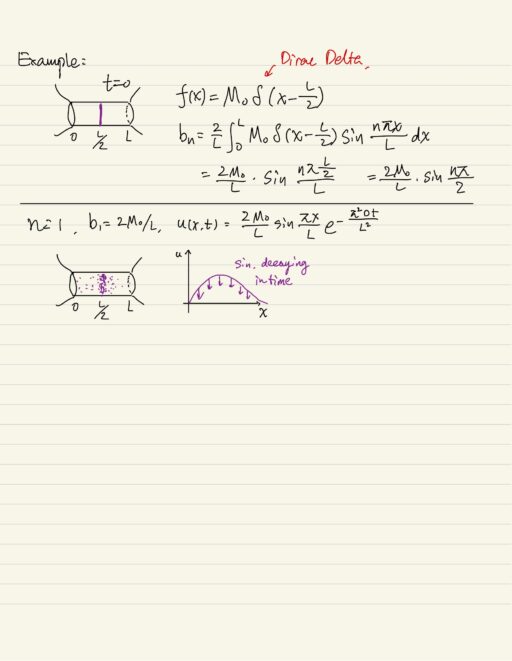 Example:
Dirac Delta,
t=0
0 L/2 L
f(x) = M₀ δ (x - L/2)
bn = 2/L ∫₀ᴸ M₀ δ (x - L/2) sin nπx/L dx
= 2M₀/L · sin nπ L/2 / L = 2M₀/L · sin nπ/2
n=1, b₁ = 2M₀/L, u(x,t) = 2M₀/L sin πx/L e^(-π²Dt/L²)
0 L/2 L
u
sin, decaying
in time
x